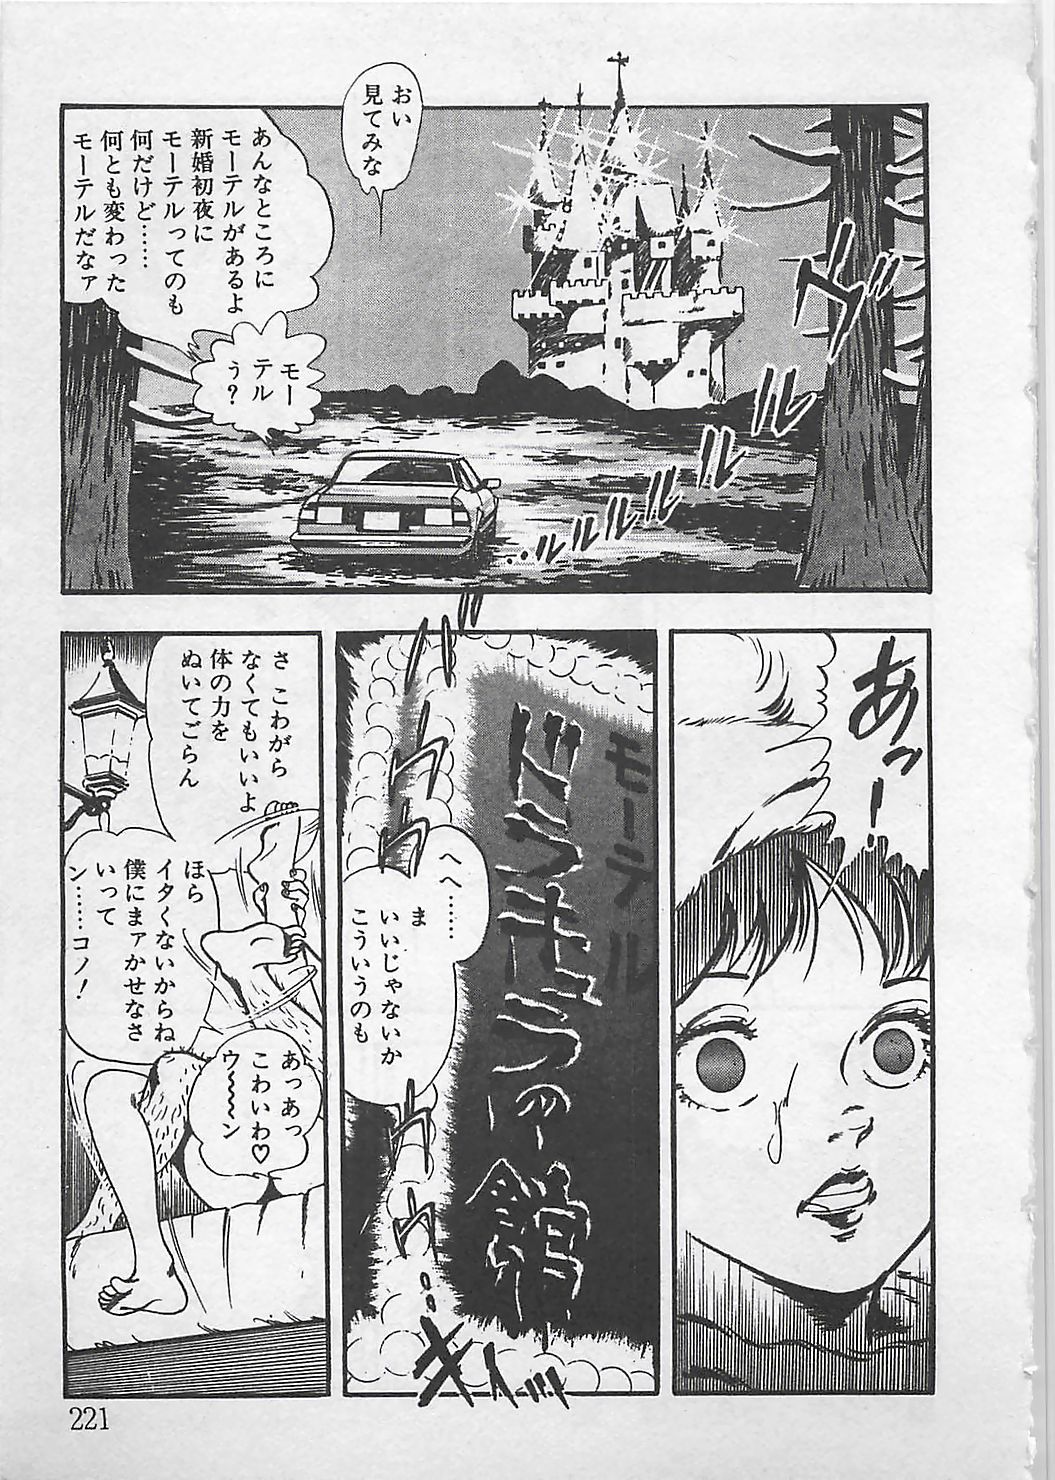 おい
見てみな
あんなところに
モーテルがあるよ
新婚初夜に
モーテルってのも
何だけど……
何とも変わった
モーテルだなァ
モー
テル
う?
ブ゛
ルルルルルル…
あっ!
モーテル
ドラキュラの館
へへ……
ま
いいじゃないか
こういうのも
キイッ
さ こわがら
なくてもいいよ
体の力を
ぬいてごらん
ほら
イタくないからね
僕にまァかせなさ
いって
ン……コノ!
あっあっ
こわいわ♡
ウ~~~ン
221